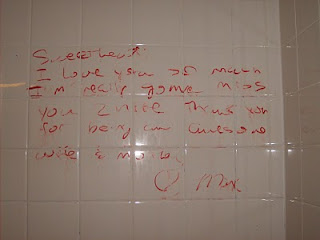 Sweetheart,
I love you so much
I'm really gonna miss
you 2 nite Thank you
for being an awesome
wife & mother
Max